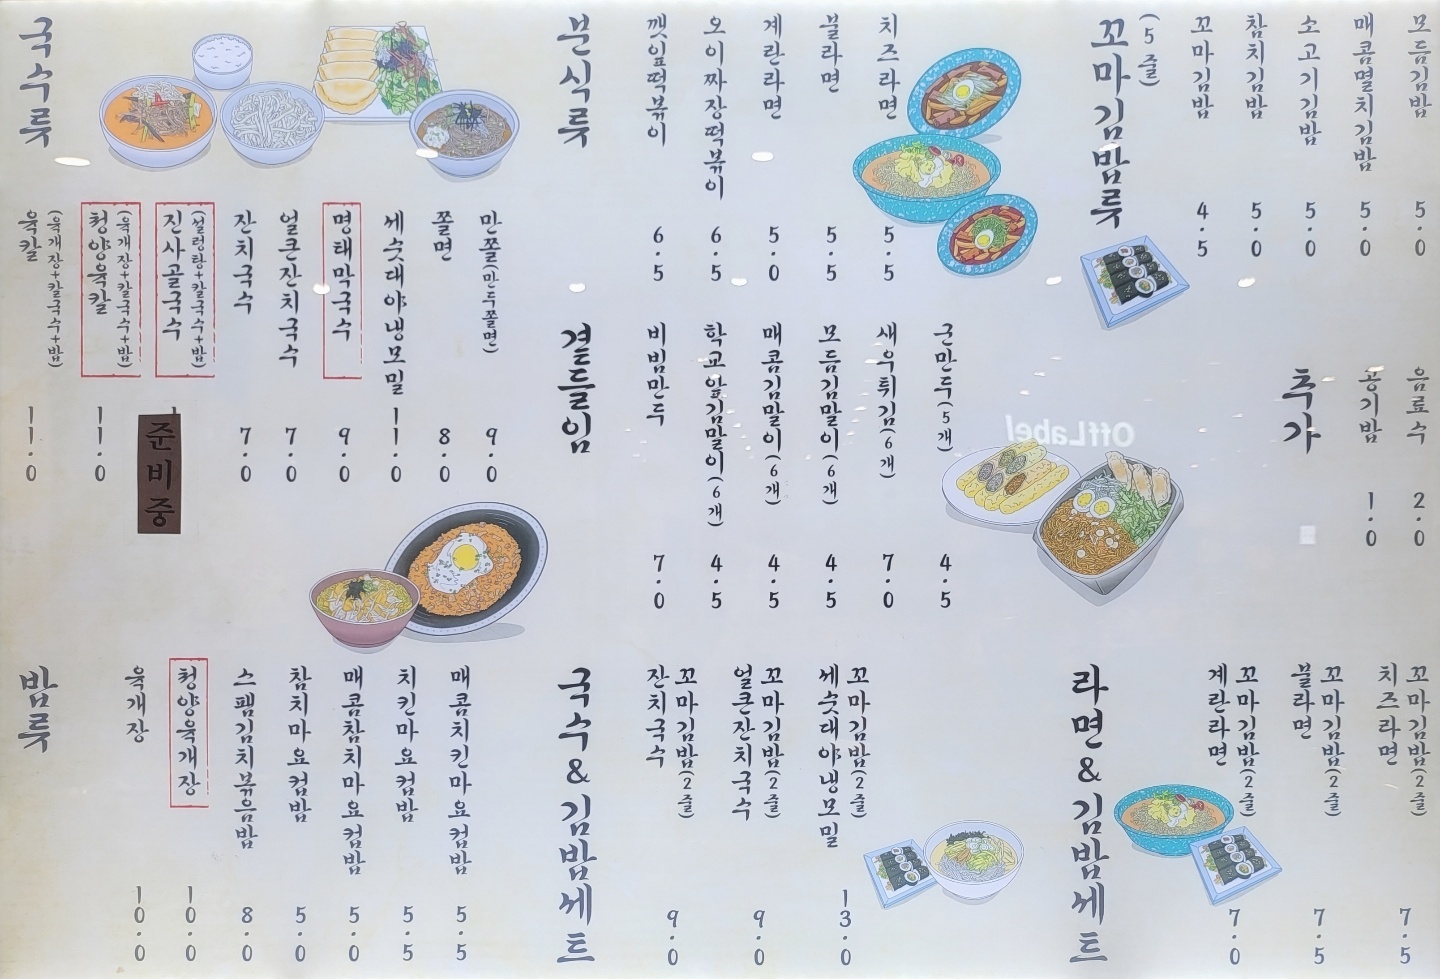 국수륙
육칼
(육개장+칼국수+밥)
11.0
청양육칼
(육개장+칼국수+밥)
11.0
진사골국수
(설렁탕+칼국수+밥)
준비중
잔치국수
7.0
얼큰잔치국수
7.0
명태막국수
9.0
세숫대야냉모밀
11.0
쫄면
8.0
만쫄(만두쫄면)
9.0
분식륙
깻잎떡볶이
6.5
오이짜장떡볶이
6.5
계란라면
5.0
불라면
5.5
치즈라면
5.5
꼬마김밥륙
(5줄)
꼬마김밥
4.5
참치김밥
5.0
소고기김밥
5.0
매콤멸치김밥
5.0
모듬김밥
5.0
곁들임
비빔만두
7.0
학교앞김말이(6개)
4.5
매콤김말이(6개)
4.5
모듬김말이(6개)
4.5
새우튀김(6개)
7.0
군만두(5개)
4.5
OffLabel
추가
공기밥
1.0
음료수
2.0
밥륙
육개장
10.0
청양육개장
10.0
스팸김치볶음밥
8.0
참치마요컵밥
5.0
매콤참치마요컵밥
5.0
치킨마요컵밥
5.5
매콤치킨마요컵밥
5.5
국수&김밥세트
꼬마김밥(2줄)
잔치국수
9.0
꼬마김밥(2줄)
얼큰잔치국수
9.0
꼬마김밥(2줄)
세숫대야냉모밀
13.0
라면&김밥세트
꼬마김밥(2줄)
계란라면
7.0
꼬마김밥(2줄)
불라면
7.5
꼬마김밥(2줄)
치즈라면
7.5